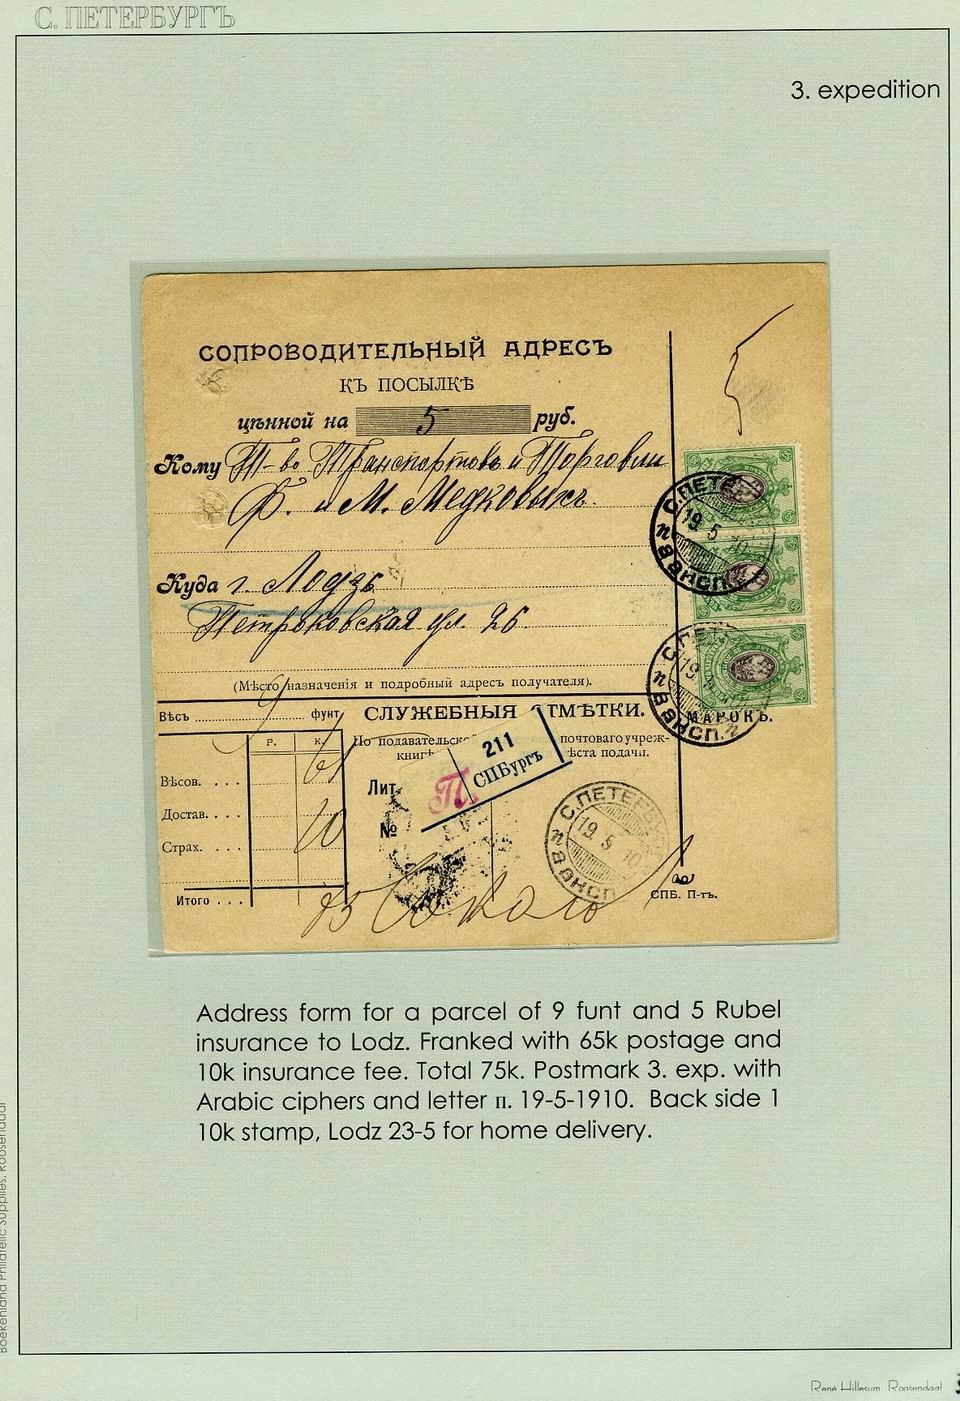 С. ПЕТЕРБУРГЪ
3. expedition
СОПРОВОДИТЕЛЬНЫЙ АДРЕСЪ
КЪ ПОСЫЛКѢ
цѣнной на 5 руб.
Кому Т-во Транспортовъ и Торговли
Ф. и М. Медковыхъ.
Куда г. Лодзь
Петроковская ул. 26.
(Мѣсто назначенія и подробный адресъ получателя).
Вѣсъ 9 фунт
СЛУЖЕБНЫЯ ОТМѢТКИ.
МАРОКЪ.
Р. К.
По подавательско
книгѣ
почтоваго учреж-
ѣста подачи.
211
СПБургъ
Вѣсов. . . . 65
Лит.
П.
Достав. . . . 10
№
Страх. . . .
Итого . . .
С. ПЕТЕРБУ
19 5 10
п 3 ЭКСП.
С. ПЕТЕ
19. 5 10
п 3 ЭКСП.
19
п 3 ЭКСП. п
СПБ. П-тъ.
Address form for a parcel of 9 funt and 5 Rubel
insurance to Lodz. Franked with 65k postage and
10k insurance fee. Total 75k. Postmark 3. exp. with
Arabic ciphers and letter п. 19-5-1910. Back side 1
10k stamp, Lodz 23-5 for home delivery.
Boekenland Philatelic Supplies, Roosendaal
René Hillesum Roosendaal